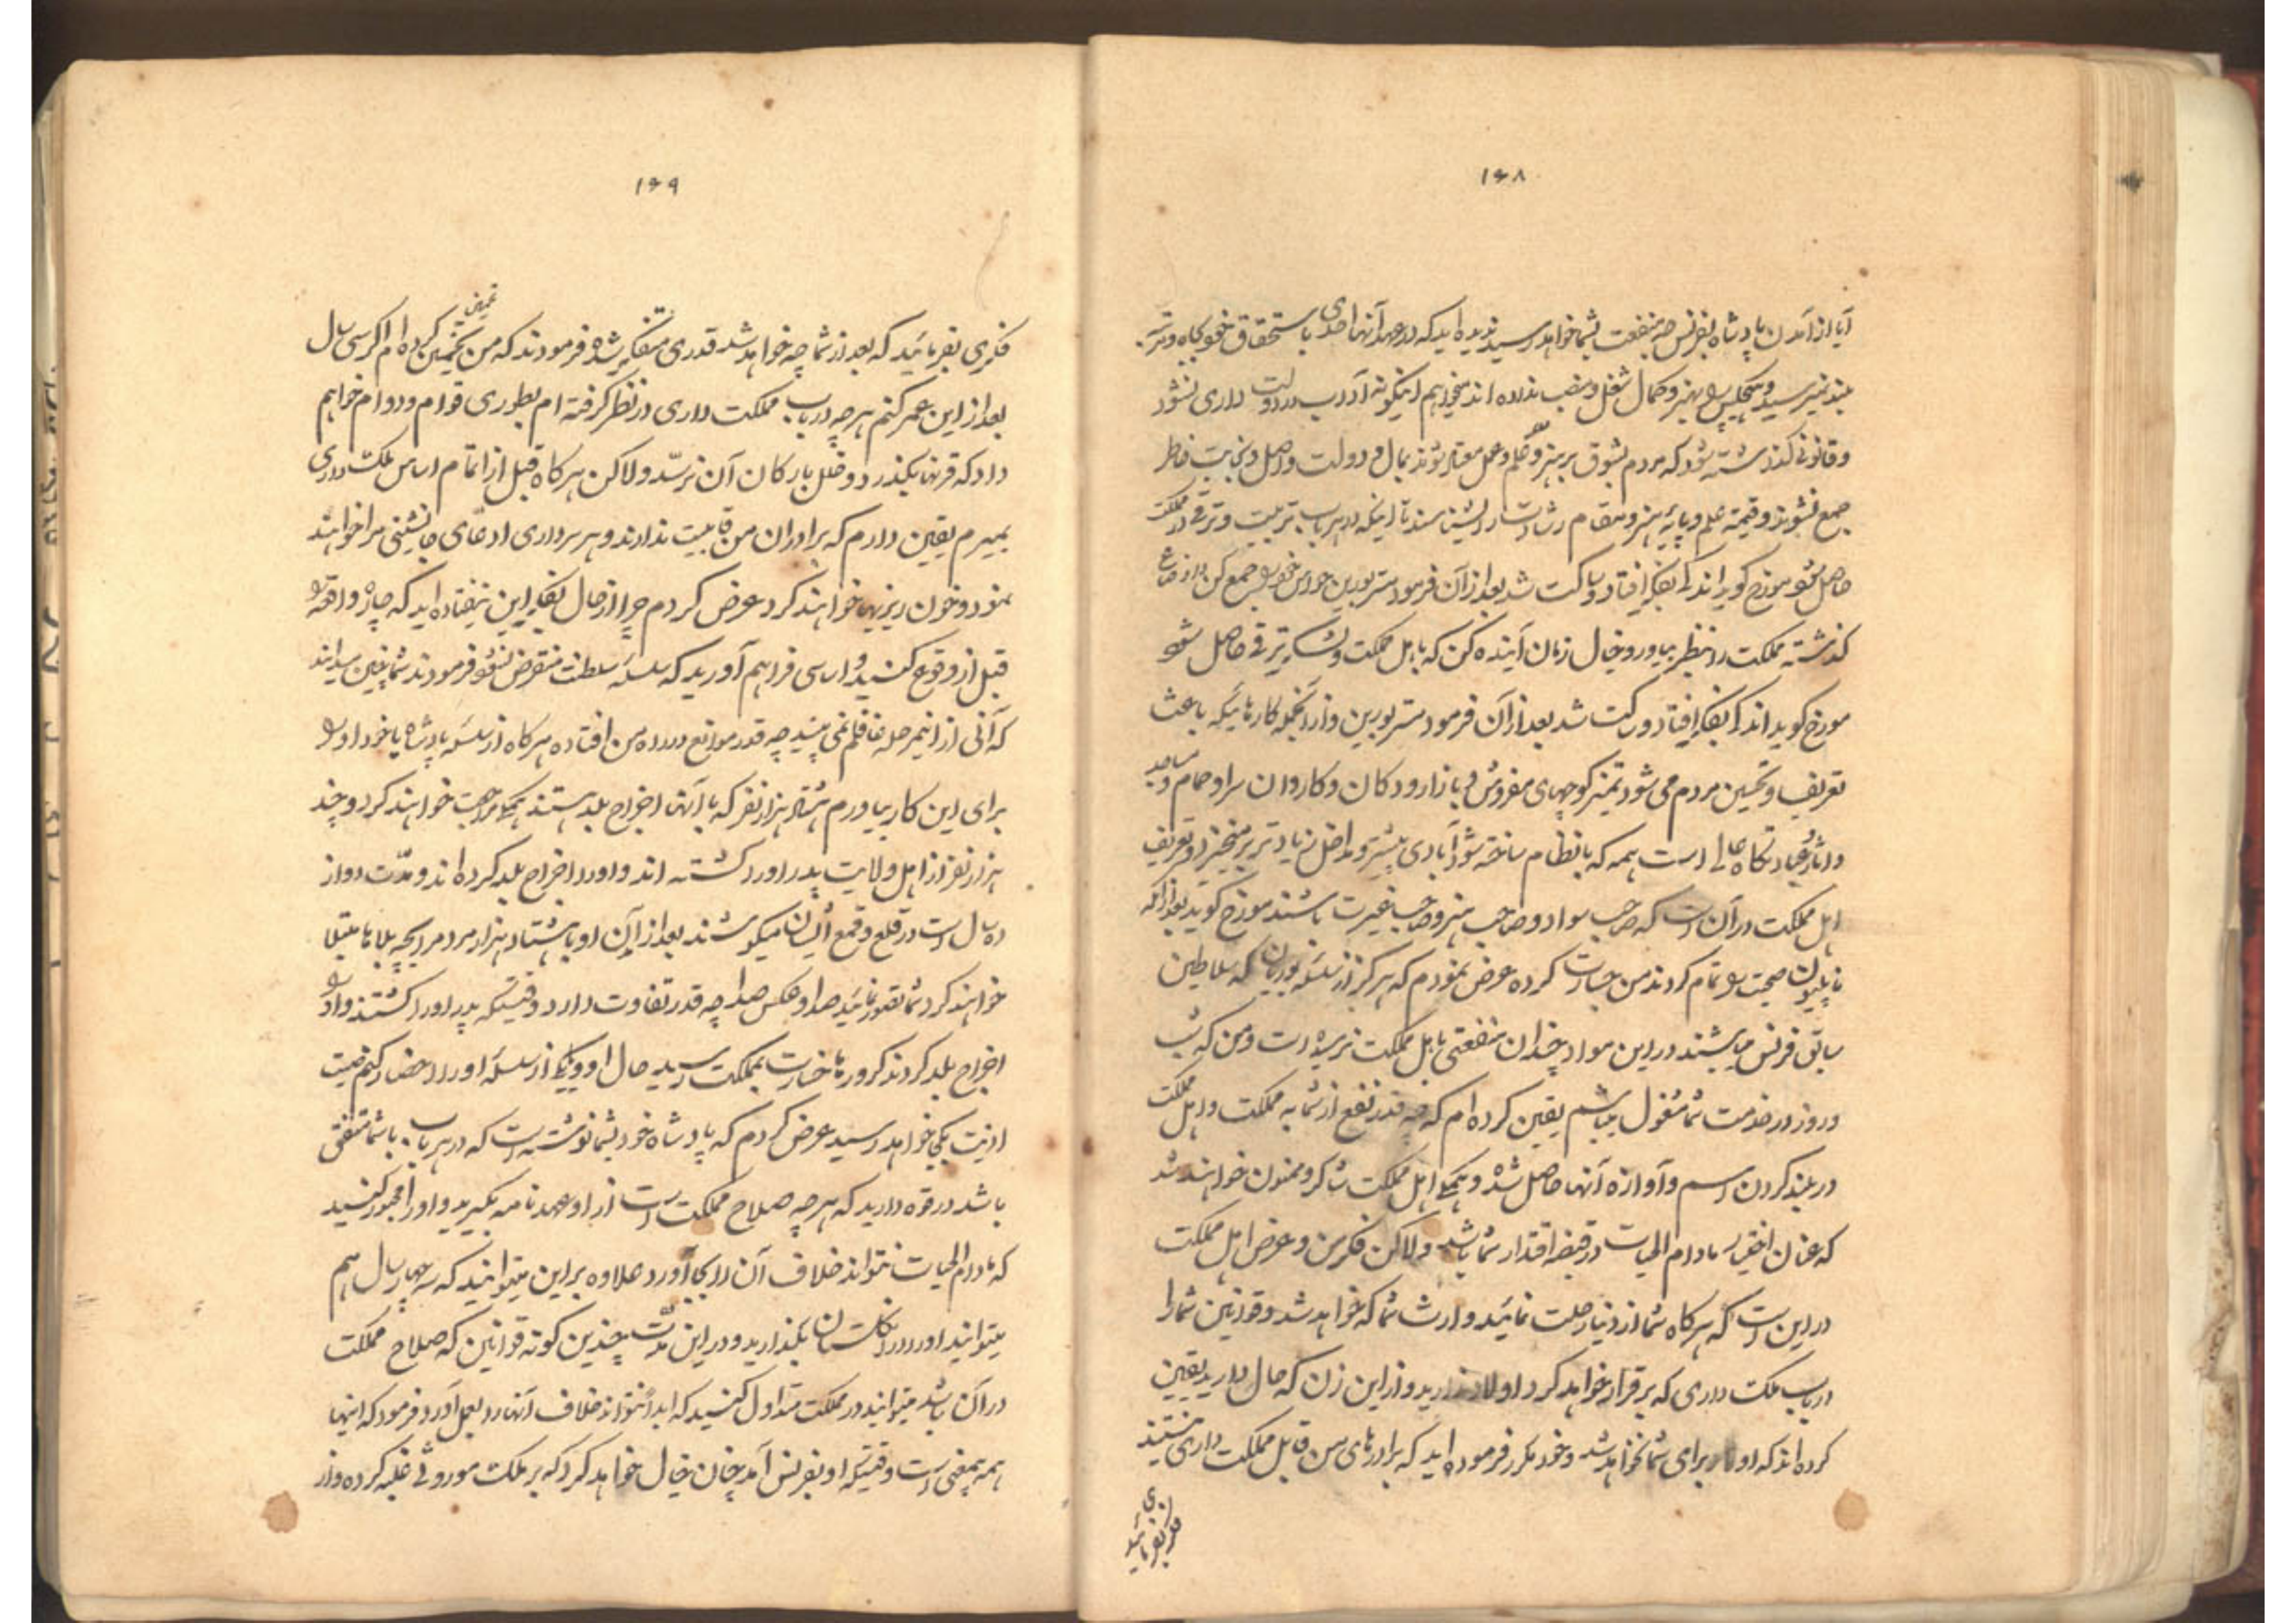 ۱۶۸
آیا از آمدن پادشاه بفرانس چه منفعت بشما خواهد رسید ندیده اید که در عهد آنها احدی باستحقاق خود بجاه و مرتبه
بلند نمیرسید و هیچکس را بهنر و کمال شغل و منصب نداده اند میخواهم اینگونه آداب در دولت داری نشود
و قانونی گذاشته شود که مردم بشوق بر هنر و علم و عمل معتاد شوند بمال و دولت و اصل و نجابت خاطر
جمع نشوند و قیمت علم و پایه هنر و مقام رشادت را بشناسند تا اینکه در هر باب تربیت و ترقی در مملکت
حاصل شود مورخ گوید اندکی بفکر افتاد و ساکت شد بعد از آن فرمود مستر بورین حواس خود را جمع کن و از ضایع
گذشته مملکت را بنظر بیاور و خیال زمان آینده کن که باهل مملکت و لشکر ترقی حاصل شود
مورخ گوید اندکی بفکر افتاد و ساکت شد بعد از آن فرمود مستر بورین و از آنجمله کارهائیکه باعث
تعریف و تحسین مردم می شود تعمیر کوچهای مفروش و بازار و دکان و کاروان سرا و حمام و مساجد
و عبادتگاه عالی است همه که بانظام ساخته شود آبادی بیشتر و مداخل زیادتر بر میخیزد و تعریف
اهل مملکت در آن است که صاحب سواد و صاحب هنر و صاحب غیرت باشند مورخ گوید بعد از آنکه
ناپلیون صحبت را تمام کردند من جسارت کرده عرض نمودم که هرگز از سلسله بوربان که سلاطین
سابق فرانس میباشند در این مواد چندان منفعتی باهل مملکت نرسیده است و من که شب
و روز در خدمت شما مشغول میباشم یقین کرده ام که چه قدر نفع از شما به مملکت و اهل مملکت
در بلند کردن اسم و آوازه آنها حاصل شده و همگی اهل مملکت شاکر و ممنون خواهند شد
که عنان اختیار مادام الحیات در قبضه اقتدار شما باشد ولاکن فکر من و عرض اهل مملکت
در این است که هرگاه شما از دنیا رحلت نمائید وارث شما که خواهد شد و قوانین شما را
در باب ملک داری که برقرار خواهد کرد اولاد ندارید و از این زن که حال دارید یقین
کرده اند که اولاد برای شما نخواهد شد و خود مکرر فرموده اید که برادرهای من قابل مملکت داری نیستند
فکری بفرمائید
۱۶۹
فکری بفرمائید که بعد از شما چه خواهد شد قدری متفکر شده فرمودند که من تخمین کرده ام اگر سی سال
تخمین
بعد از این عمر کنم هر چه در باب مملکت داری در نظر گرفته ام بطوری قوام و دوام خواهم
داد که قرنها بگذرد و خلل بارکان آن نرسد ولاکن هرگاه قبل از اتمام اساس ملک داری
بمیرم یقین دارم که برادران من قابلیت ندارند و هر سرداری ادعای جانشینی مرا خواهند
نمود و خون ریزیها خواهند کرد عرض کردم چرا از حال بفکر این نیفتاده اید که چاره واقعه را
قبل از وقوع کنید و اساسی فراهم آورید که سلسله سلطنت منقرض نشود فرمودند شما یقین بدانید
که آنی از این مرحله غافل نمی باشم چه قدر موانع در راه من افتاده هرگاه از سلسله پادشاه یا خود او را
برای این کار بیاورم هشتاد هزار نفر که با آنها اخراج بلد هستند همگی مراجعت خواهند کرد و چند
هزار نفر از اهل ولایت پدر او را کشته اند و او را اخراج بلد کرده اند و مدت دوازده
سال است در قلع و قمع ایشان میکوشند بعد از این او با هشتاد هزار مرد مرا بچه بلاها مبتلا
خواهند کرد شما تصور نمائید صدا و عکس صدا چه قدر تفاوت دارد وقتیکه پدر او را کشتند و او را
اخراج بلد کردند کرورها خسارت بمملکت رسید حال او و یکی از سلسله او را احضار کنم
اذیت بکی خواهد رسید عرض کردم که پادشاه خود بشما نوشته است که در هر باب با شما متفق
باشد در قوه دارید که هر چه صلاح مملکت است از او عهدنامه بگیرید و او را مجبور کنید
که مادام الحیات نتواند خلاف آن را بجا آورد علاوه بر این میتوانید که سه چهار سال هم
میتوانید او را در انگلستان بگذارید و در این مدت چندین گونه قوانین که صلاح مملکت
در آن باشد میتوانید در مملکت متداول کنید که ابدا نتواند خلاف آنها را بعمل آورد فرمود که اینها
همه بیمعنی است وقتیکه او بفرانس آمد چنان خیال خواهد کرد که بر ملک موروثی غلبه کرده و از